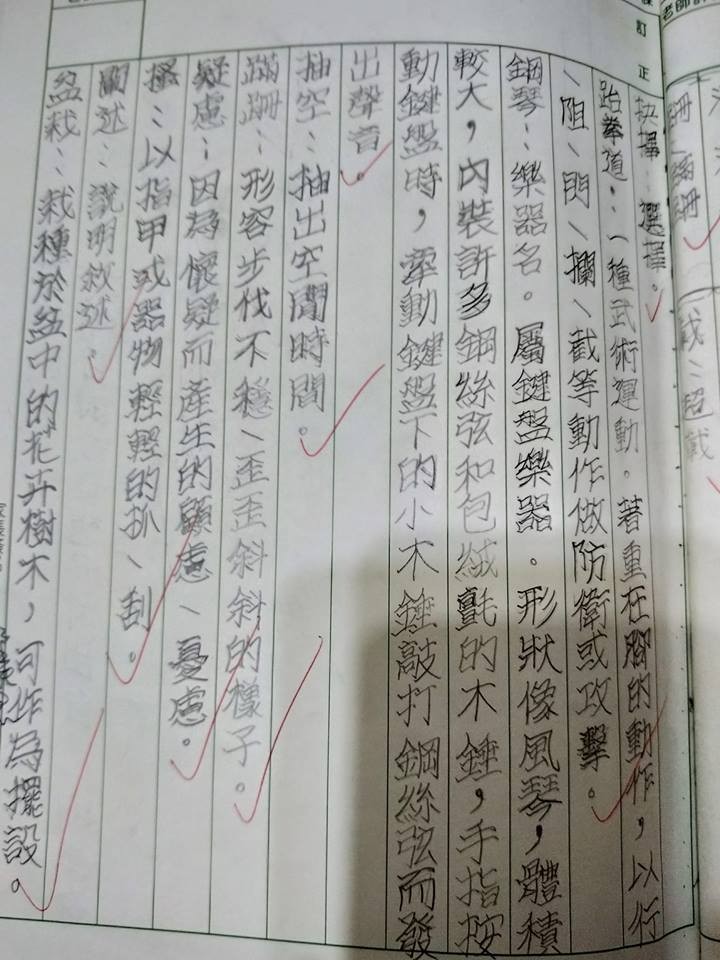 訂正
抉擇：選擇。
跆拳道：一種武術運動。著重在腳的動作，以行
、阻、閃、攔、截等動作做防衛或攻擊。
鋼琴：樂器名。屬鍵盤樂器。形狀像風琴，體積
較大，內裝許多鋼絲弦和包絨氈的木錘，手指按
動鍵盤時，牽動鍵盤下的小木錘敲打鋼絲弦而發
出聲音。
抽空：抽出空閒時間。
蹣跚：形容步伐不穩、歪歪斜斜的樣子。
疑慮：因為懷疑而產生的顧慮、憂慮。
搔：以指甲或器物輕輕的扒、刮。
闡述：說明敘述。
盆栽：栽種於盆中的花卉樹木，可作為擺設。